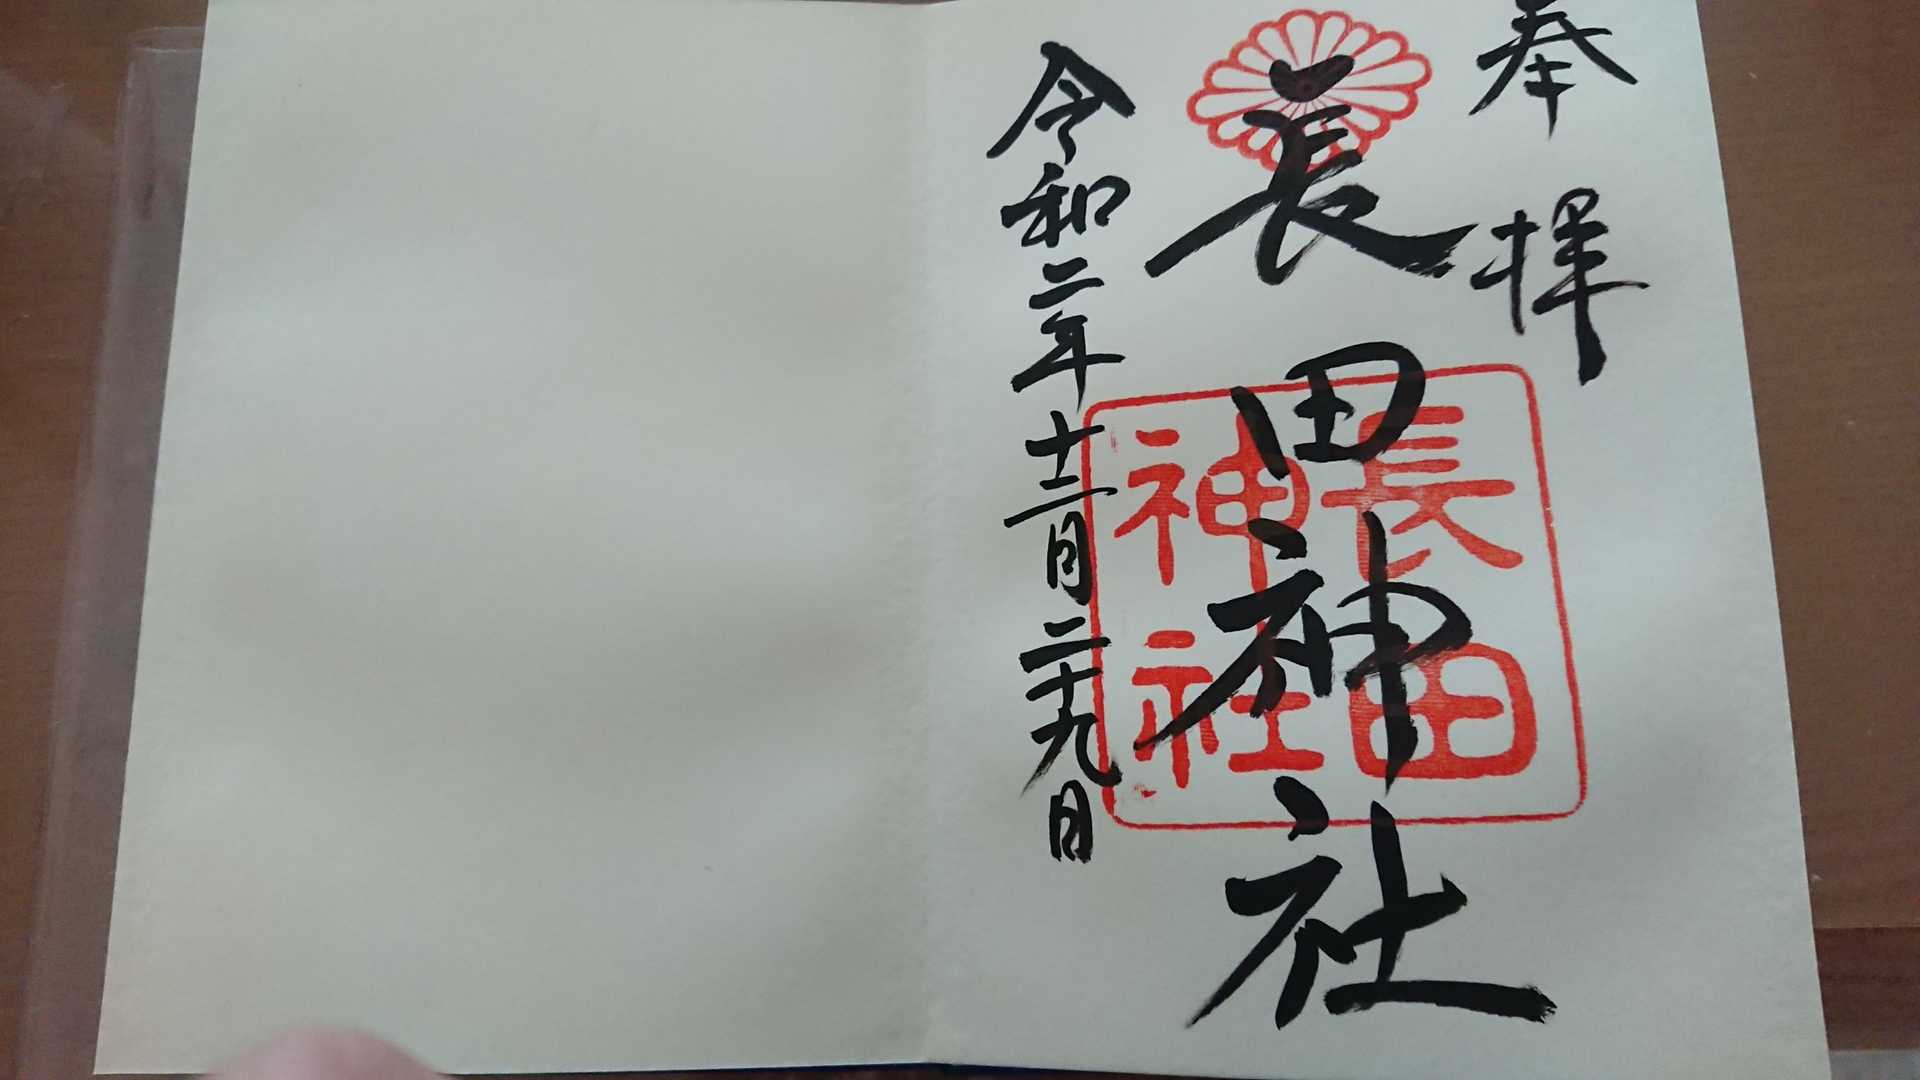 奉拝
長田神社
長田
神社
令和二年十二月二十九日